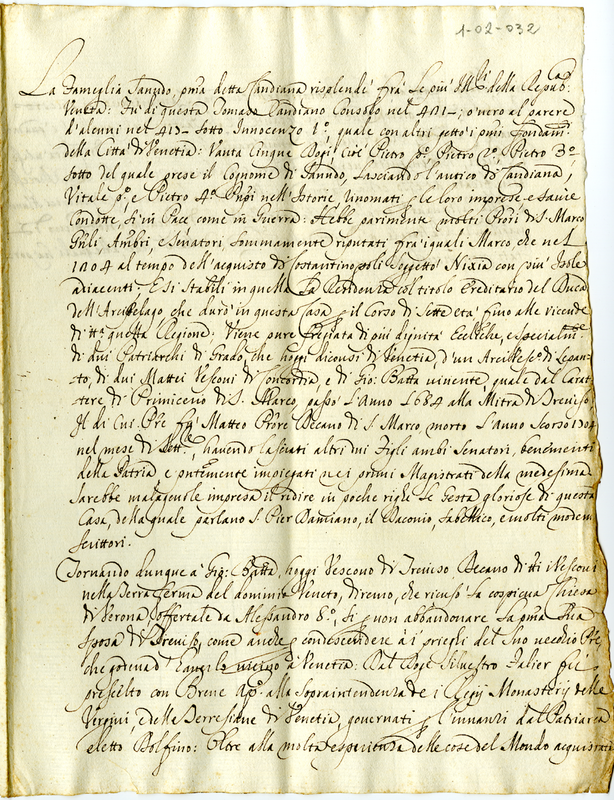 1-02-032
La Fameglia Sanudo, pma detta Candiana risplende frà le più Ill.ri della Repub.ca
Veneta: Fù di questa Tomaso Candiano Consolo nel 421; o' vero al parere
d'alcuni nel 413 sotto Innocenzo 1.º quale con altri gettò i pmi Fondam.ti
della Città di Venetia: Vanta Cinque Dogi, cioè Pietro p.º, Pietro 2.º, Pietro 3.º
sotto del quale prese il Cognome di Sanudo, lasciando l'antico di Candiana,
Vitale p.º, e Pietro 4.º nell'Istorie, le loro imprese e savie
Condotte, sì in Pace, come in Guerra: Hebbe parimente molti Prori di S. Marco
Gñli, Ambri, e Senatori, sommamente riputati frà i quali Marco, che nel
1204 al tempo dell'acquisto di Costantinopoli soggettò Nixia con più Isole
adiacenti. E si stabilì in quella la Residenza col titolo Ereditario del Duca
dell'Arcipelago che durò in questa Casa p il Corso di Sette età fino alle vicende
di tta questa Regione: Viene pure fregiata di più dignità Ecclche, e specialmte
di dui Patriarchi di Grado, che hoggi diconsi di Venetia, d'un Arcivesc.º di Lepan-
to, di dui Mattei Vesconi di Concordia, e di Gio: Batta vivente, quale dal Carat-
tere di Primicerio di S. Marco, passò l'Anno 1684 alla Mitra di Treviso,
Il di Cui Pře fù Matteo Prõre Decano di S. Marco, morto l'Anno scorso 1704
nel mese di Sett.e, havendo lasciati altri dui Figli ambi Senatori, benemeriti
della Patria e pñtemente impiegati nei primi Magistrati della medesima
Sarebbe malagevole impresa il ridire in poche righe le Gesta gloriose di questa
Casa, della quale parlano S. Pier Damiano, il Baronio, Sabellico, e molti moderni
scrittori.
Tornando dunque à Gio: Batta, hoggi Vescouo di Treviso Decano di tti i Vescoui
nella Terra Ferma del dominio Veneto, diremo, che ricusò la cospicua Chiesa
di Verona, offertale da Alessandro 8.º, sì p non abbandonare la pma Sua
Sposa di Treviso, come anche p condescendere à i prieghi del suo vecchio Pře
che godeva d'haverlo vicino à Venetia: Dal Doge Silvestro Valier fù
prescielto con Breve Ap.º alla Sopraintendenza de i Regij Monasterij delle
Vergini, e delle Terresiane di Venetia, governati p l'innanzi dal Patriarca
eletto Dolfino: Oltre alla molta esperienza delle cose del Mondo acquistata